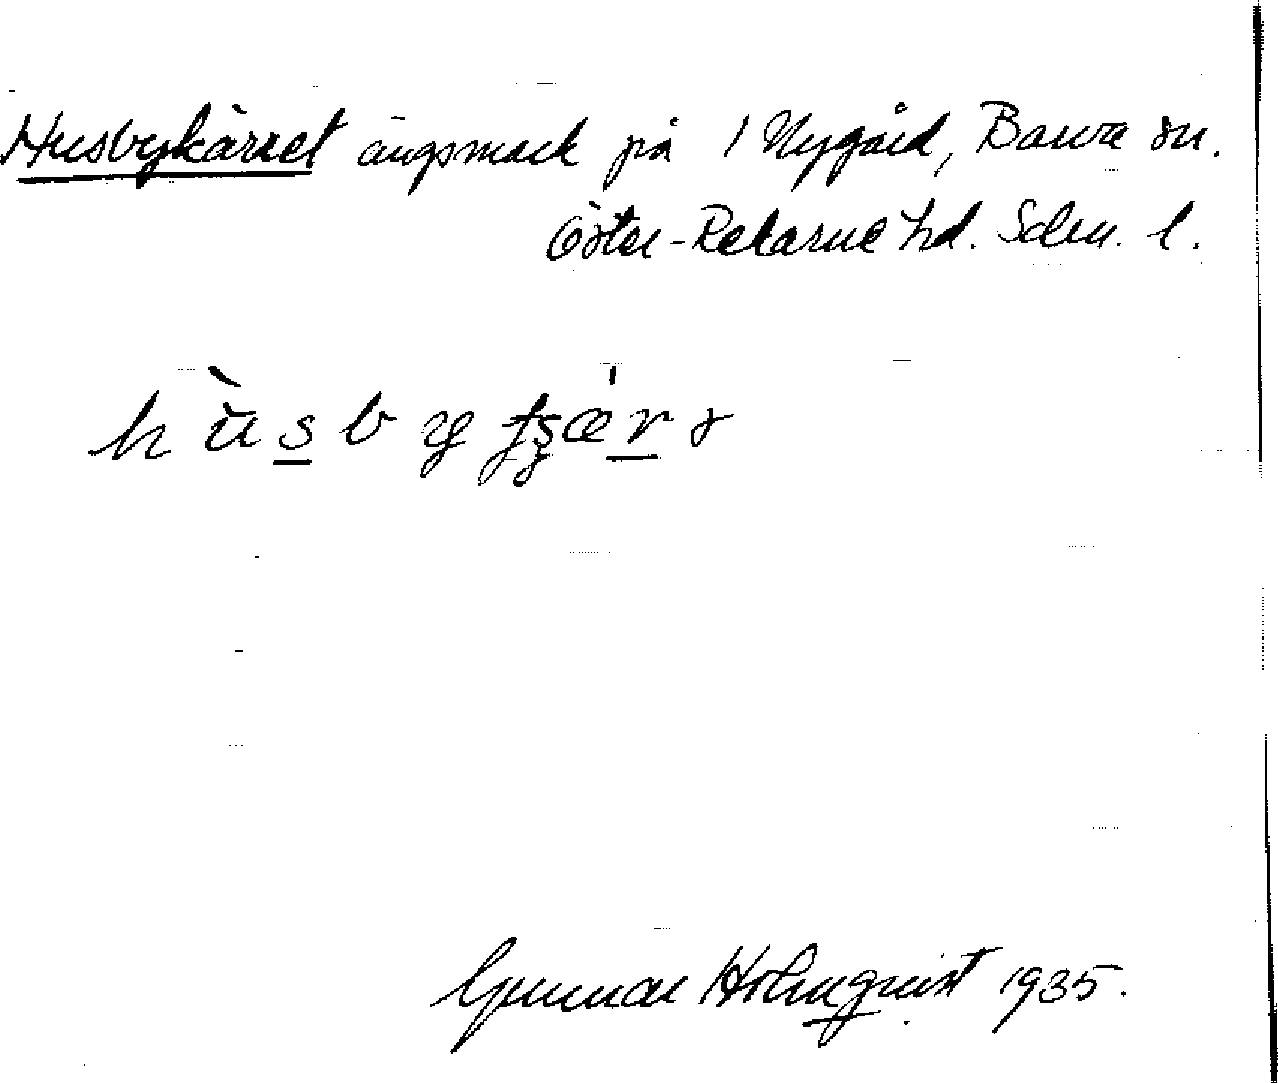 Husbykärret ängsmark på 1 Nygård, Barva sn.
Öster-Rekarne hd. Sdm. l.
Gunnar Holmqvist 1935.